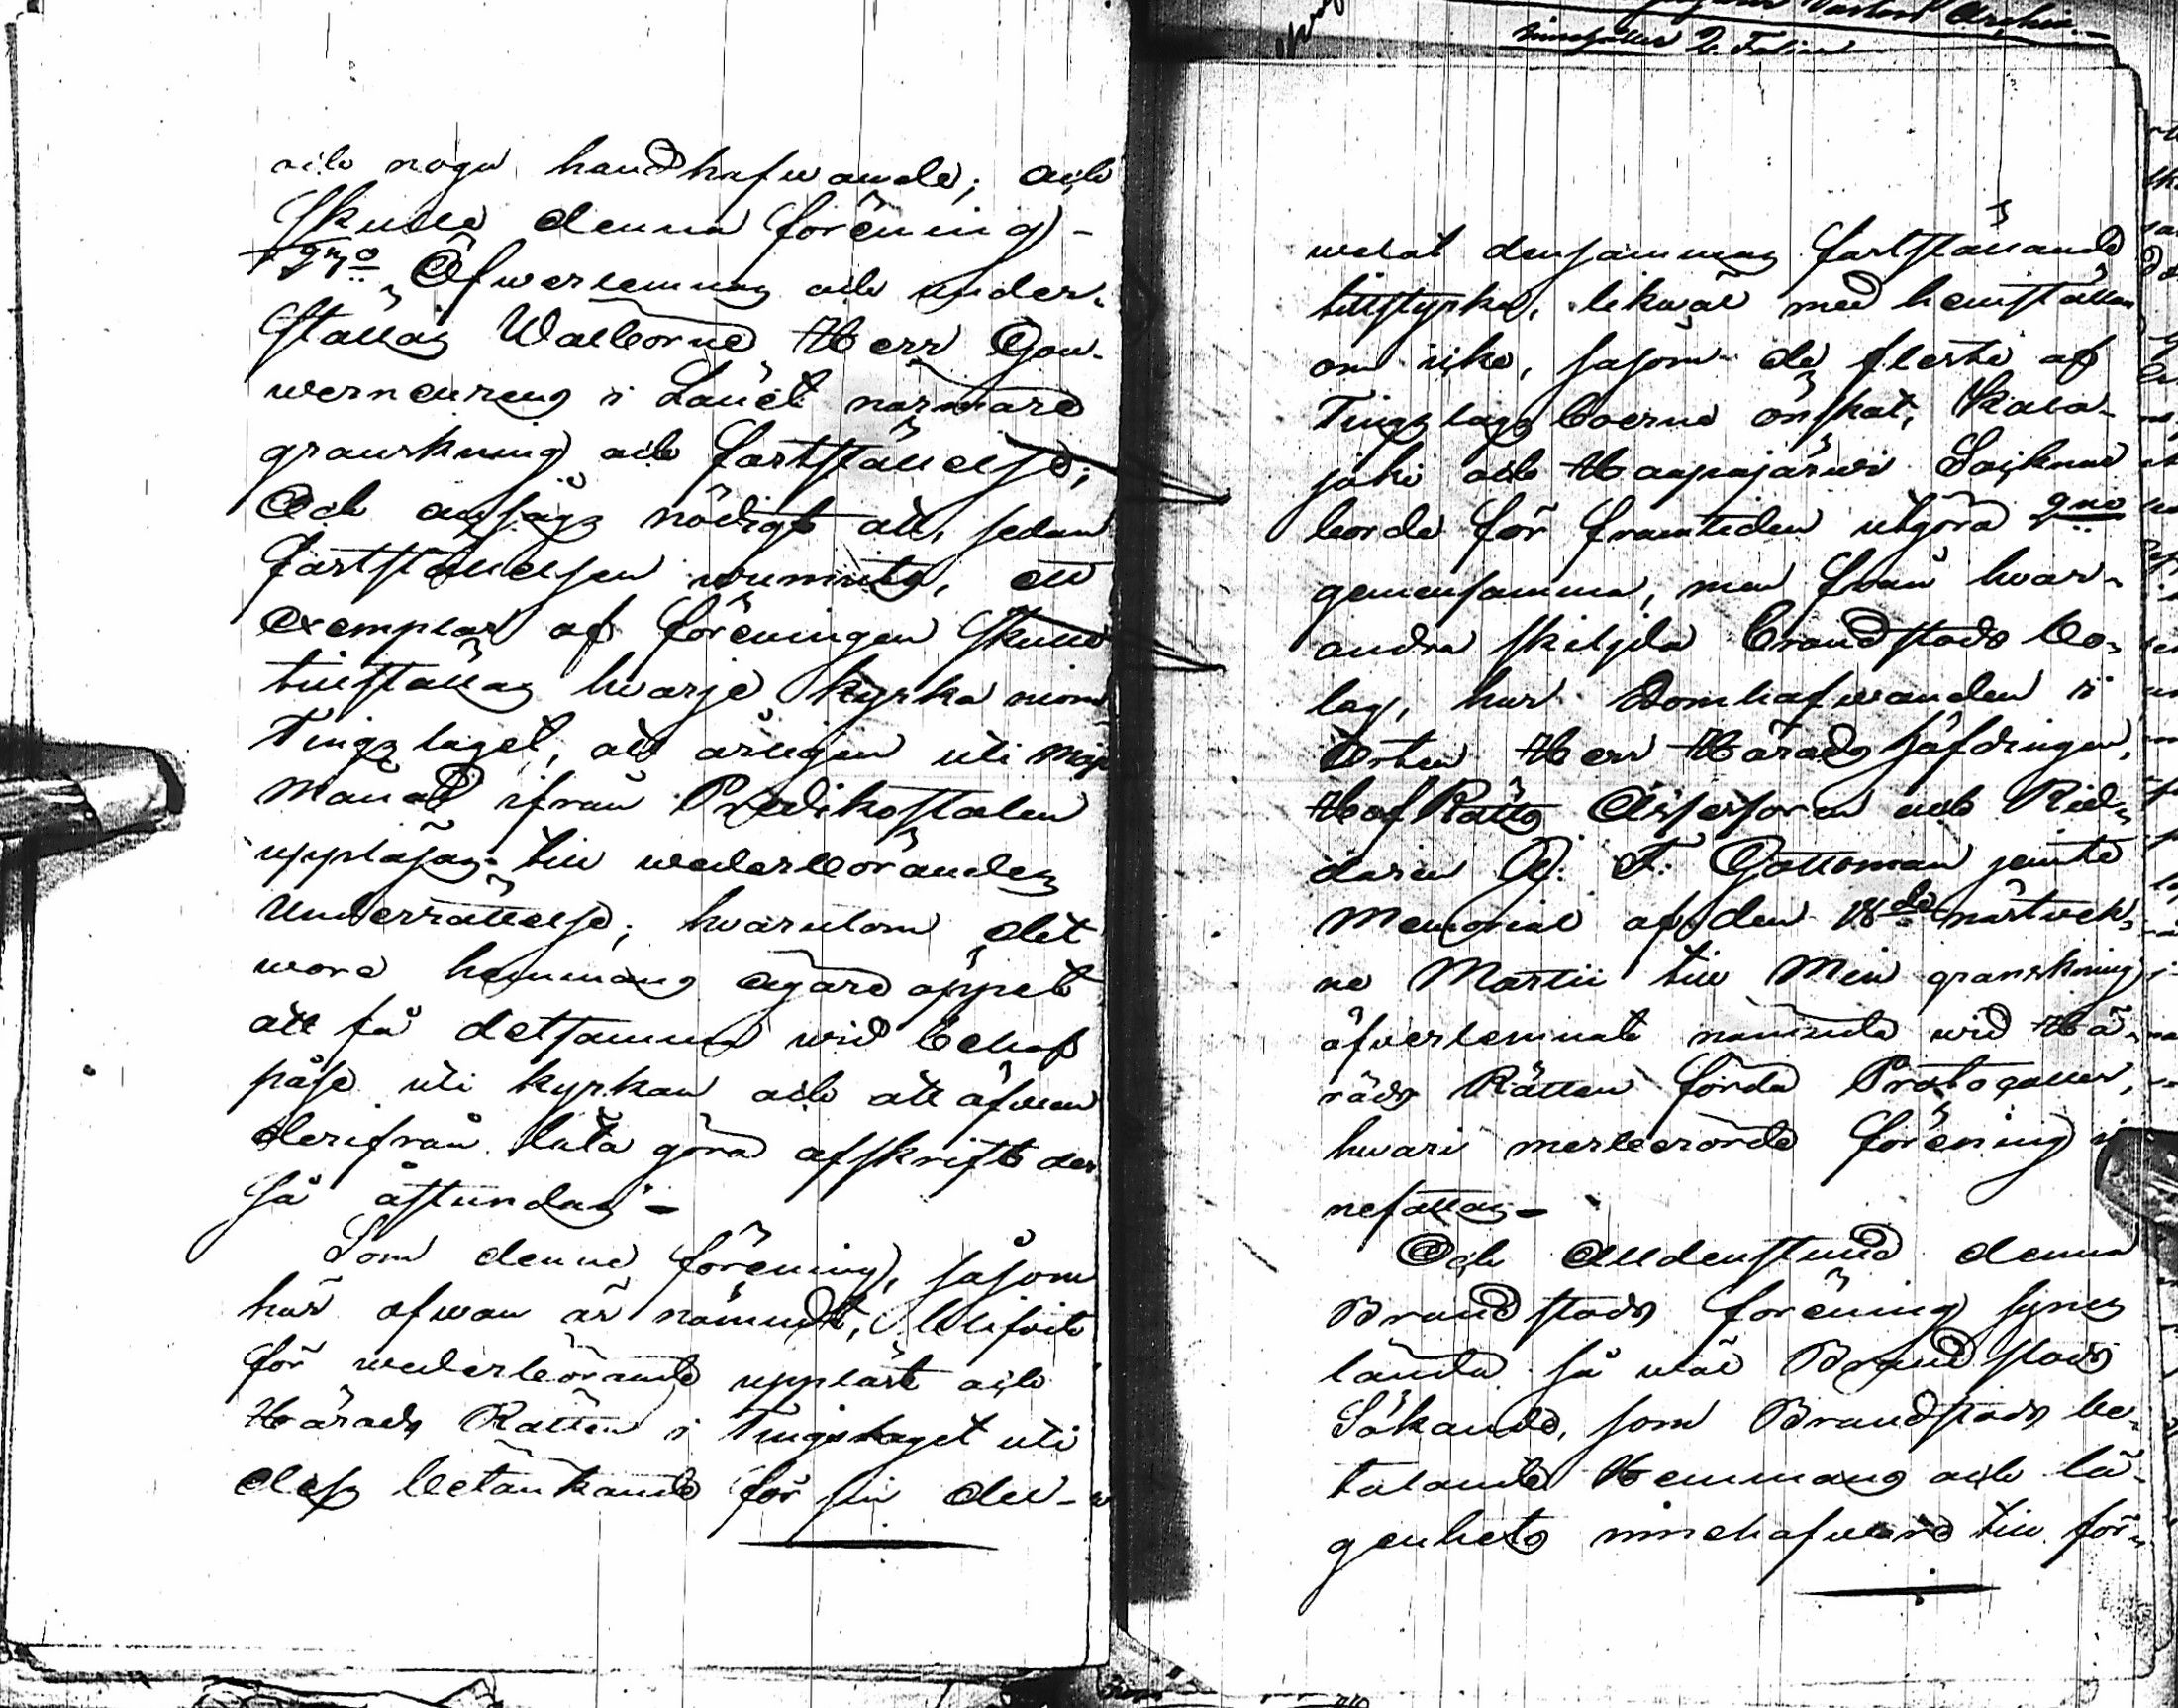 och noga handhafwande; och
skulle denna förening -
9no Öfwerlemnas och under-
ställas Wälborne Herr Gou-
verneurens i Länet närmare
granskning och fastställelse;
Och ansågs nödigt att, sedan
fastställelsen wunnits, ett
exemplar af föreningen skulle
tillställas hwarje kyrka inom
Tingslaget, att årligen uti Maji
månad ifrån Predikostolen
uppläsas till wederbörandes
Underrättelse; hwarutom det
wore hemmans ägare öppet
att få detsamma wid behof
påse uti kyrkan och att äfwen
derifrån låta göra afskrift der
så åstundas -
Som denne förening, såsom
här ofwan är nämndt, blifvit
för wederbörande uppläst och
Härads Rätten i Tingslaget uti
dess betänkande för sin del
Archiv.
welat densammas fastställande
tillstyrka, likwäl med hemställan
om icke, såsom de fleste af
Tingslags boerne önskat, Kala-
joki och Haapajärwi Socknar
borde för framtiden utgöra 2ne
gemensamma, men från hwar-
andra skiljda brandstods bo-
lag, har Domhafwanden i
Orten Herr Härads höfdingen,
Hof Rätts Assessoren och Rid-
daren F. Gottsman jemte
Memorial af den 18de nästwek-
ne Martii till Min granskning
öfverlemnat nämnde wid Hä-
rads Rätten förda Protocoller,
hwari merberörde förening i
nefattas -
Och Alldenstund denna
Brandstods förening synes
lända så wäl Brandstods
Sökande, som Brandstods be-
talande Hemmans och lä-
genhets innehafware till för-